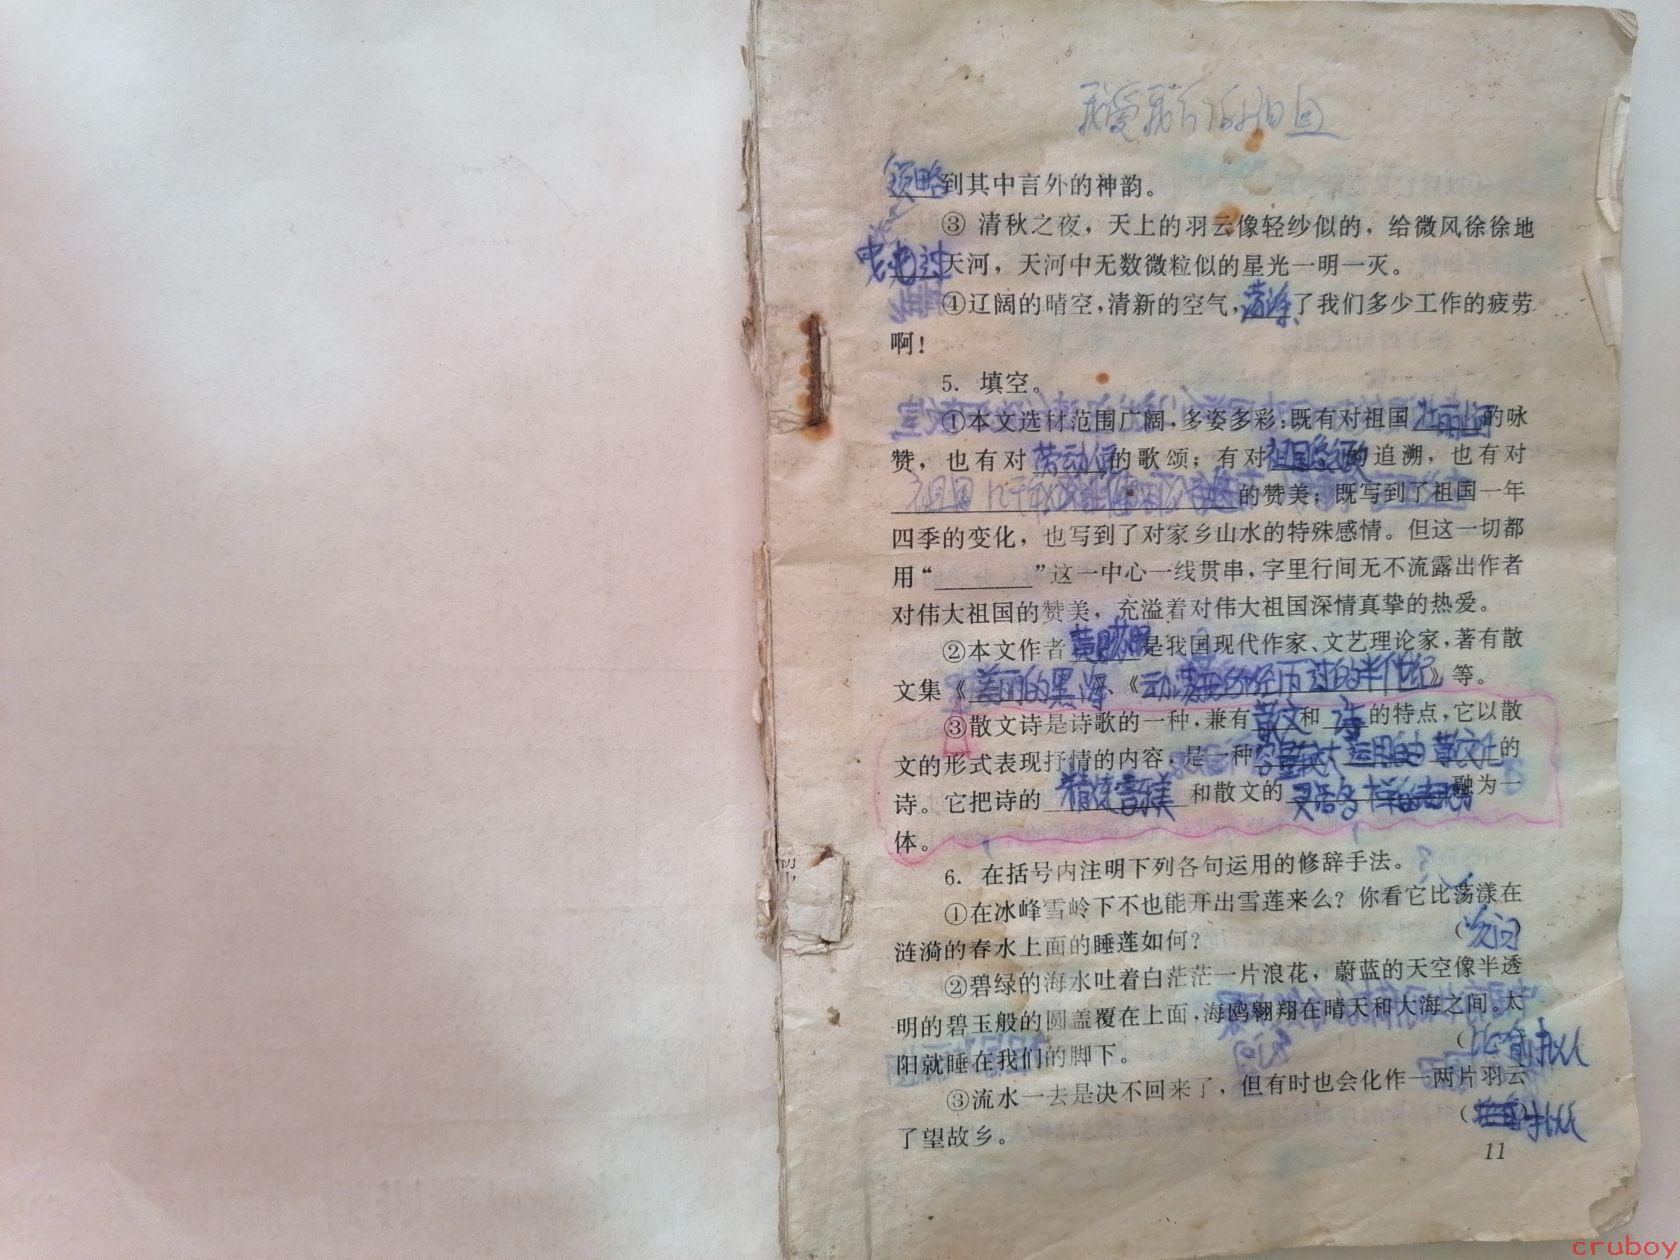 我爱我们的祖国
领略到其中言外的神韵。
③ 清秋之夜，天上的羽云像轻纱似的，给微风徐徐地
天河，天河中无数微粒似的星光一明一灭。
④辽阔的晴空，清新的空气，荡涤了我们多少工作的疲劳
啊！
5. 填空。
①本文选材范围广阔，多姿多彩：既有对祖国 的咏
赞，也有对劳动人民的歌颂；有对 的追溯，也有对
的赞美；既写到了祖国一年
四季的变化，也写到了对家乡山水的特殊感情。但这一切都
用“________”这一中心一线贯串，字里行间无不流露出作者
对伟大祖国的赞美，充溢着对伟大祖国深情真挚的热爱。
②本文作者 是我国现代作家、文艺理论家，著有散
文集《美丽的黑海》、《动荡 的半世纪》等。
③散文诗是诗歌的一种，兼有散文和诗的特点，它以散
文的形式表现抒情的内容，是一种 的
诗。它把诗的 和散文的 融为一
体。
6. 在括号内注明下列各句运用的修辞手法。
①在冰峰雪岭下不也能开出雪莲来么？你看它比荡漾在
涟漪的春水上面的睡莲如何？ （反问）
②碧绿的海水吐着白茫茫一片浪花，蔚蓝的天空像半透
明的碧玉般的圆盖覆在上面，海鸥翱翔在晴天和大海之间。太
阳就睡在我们的脚下。 （比喻拟人
③流水一去是决不回来了，但有时也会化作一两片羽云
了望故乡。 （ 拟人
11
cruboy